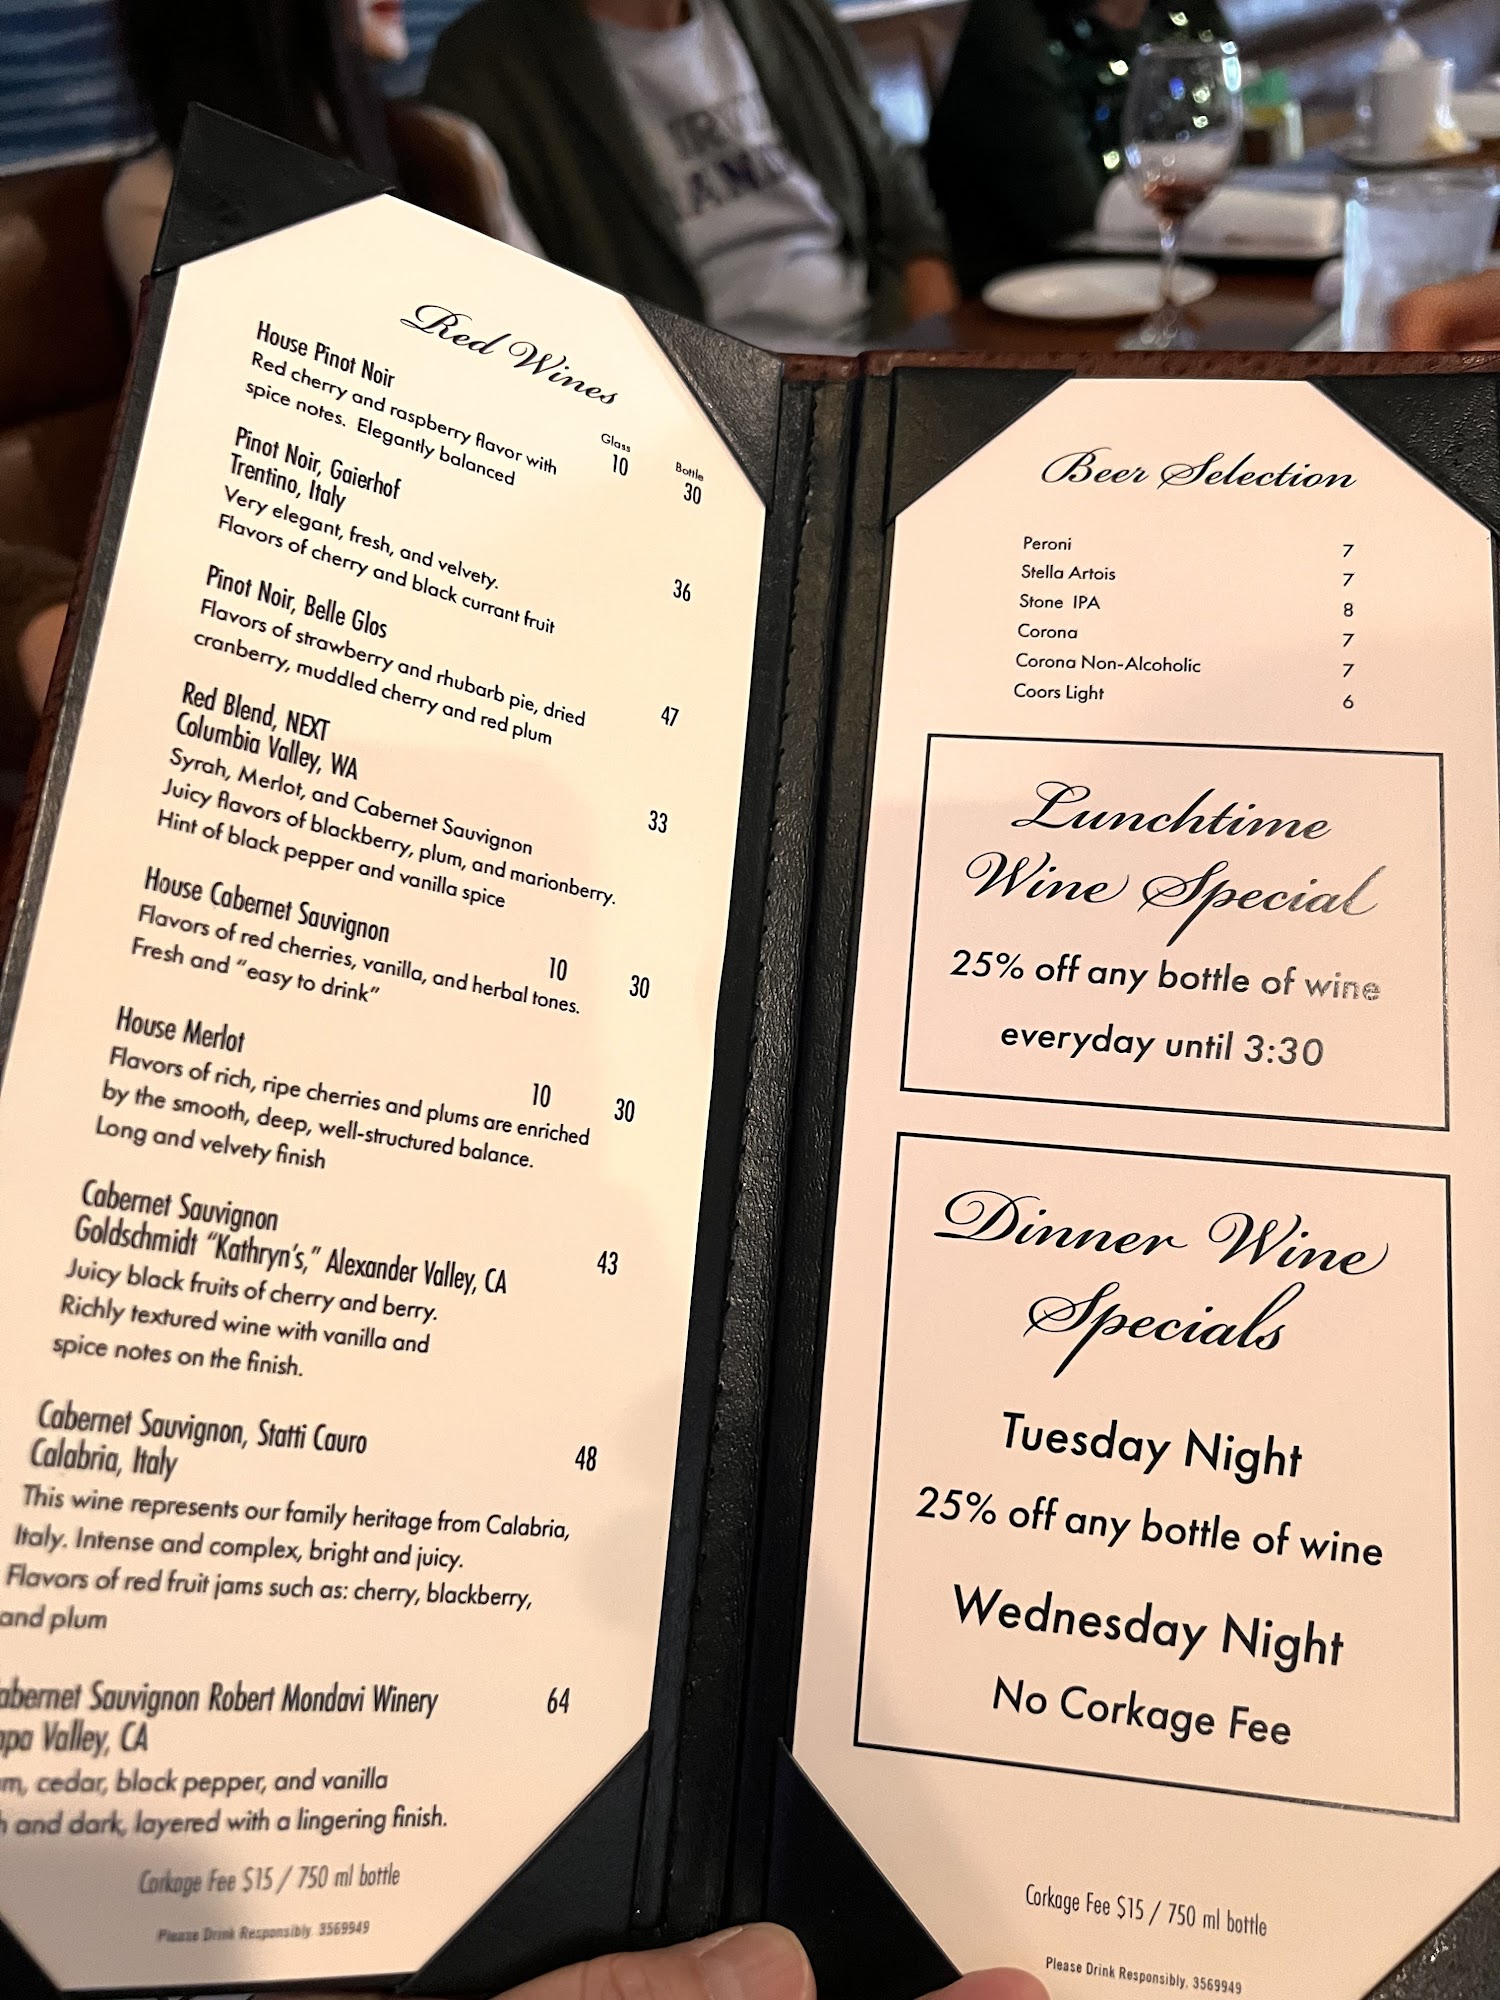 Red Wines
Glass Bottle
House Pinot Noir 10 30
Red cherry and raspberry flavor with
spice notes. Elegantly balanced
Pinot Noir, Gaierhof
Trentino, Italy 36
Very elegant, fresh, and velvety.
Flavors of cherry and black currant fruit
Pinot Noir, Belle Glos 47
Flavors of strawberry and rhubarb pie, dried
cranberry, muddled cherry and red plum
Red Blend, NEXT
Columbia Valley, WA 33
Syrah, Merlot, and Cabernet Sauvignon
Juicy flavors of blackberry, plum, and marionberry.
Hint of black pepper and vanilla spice
House Cabernet Sauvignon 10 30
Flavors of red cherries, vanilla, and herbal tones.
Fresh and “easy to drink”
House Merlot 10 30
Flavors of rich, ripe cherries and plums are enriched
by the smooth, deep, well-structured balance.
Long and velvety finish
Cabernet Sauvignon
Goldschmidt “Kathryn’s,” Alexander Valley, CA 43
Juicy black fruits of cherry and berry.
Richly textured wine with vanilla and
spice notes on the finish.
Cabernet Sauvignon, Statti Cauro 48
Calabria, Italy
This wine represents our family heritage from Calabria,
Italy. Intense and complex, bright and juicy.
Flavors of red fruit jams such as: cherry, blackberry,
and plum
abernet Sauvignon Robert Mondavi Winery 64
apa Valley, CA
cedar, black pepper, and vanilla
and dark, layered with a lingering finish.
Corkage Fee $15 / 750 ml bottle
Please Drink Responsibly. 3569949
Beer Selection
Peroni 7
Stella Artois 7
Stone IPA 8
Corona 7
Corona Non-Alcoholic 7
Coors Light 6
Lunchtime
Wine Special
25% off any bottle of wine
everyday until 3:30
Dinner Wine
Specials
Tuesday Night
25% off any bottle of wine
Wednesday Night
No Corkage Fee
Corkage Fee $15 / 750 ml bottle
Please Drink Responsibly. 3569949